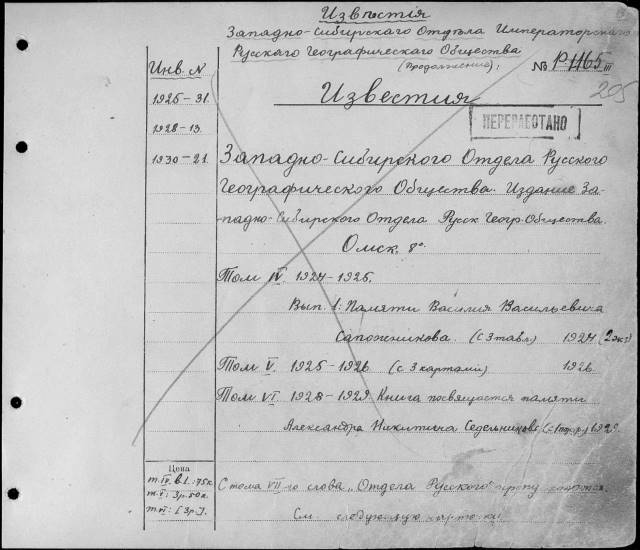 Извѣстія
Западно-Сибирскаго Отдѣла Императорскаго
Русскаго Географическаго Общества
(Продолжение). № Р1165 III
205
Инв. N
Известия
1925-31.
ПЕРЕРАБОТАНО
1928-13.
1930-21.
Западно-Сибирского Отдела Русского
Географического Общества. Издание За-
падно-Сибирского Отдела Русск. Геогр. Общества.
Омск. 8°.
Том IV. 1924-1925.
Вып. 1: Памяти Василия Васильевича
Сапожникова. (с 3 табл.) 1924 (2 экз.)
Том V. 1925-1926 (с 3 картами) 1926.
Том VI. 1928-1929. Книга посвящается памяти
Александра Никитича Седельникова 192
Цена
т. IV. в.1.: 75к.
т. V: 3р.50к.
т. VI:
С тома VII-го слова „Отдела Русского"
См. следующую карточку